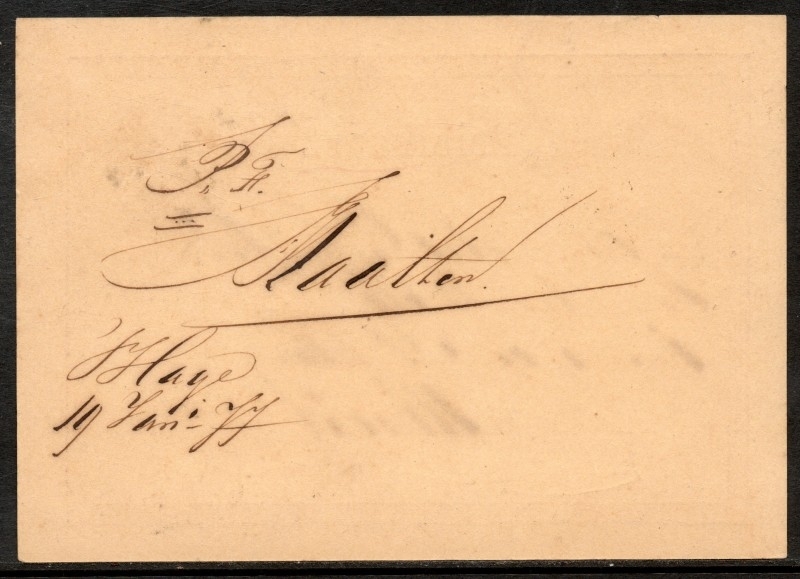 P. F.
Maalten.
's Hage
19 Jan: 77